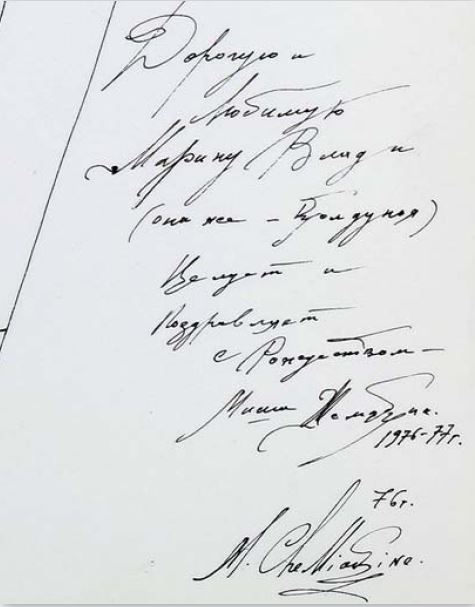 Дорогую и
любимую
Марину Влади
(она же – Колдунья)
Целует и
Поздравляет
с Рождеством –
Миша Шемякин.
1976-77г.
76г.
M. Chemiakine.